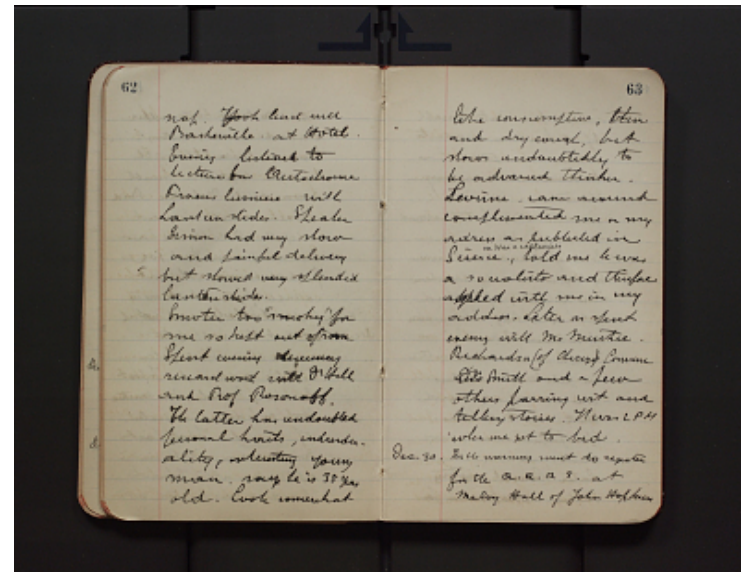 62
nap. Took lead and
Baskerville at Hotel.
Evening listened to
lecture on Autochrome
Frames Lumiere with
Lantern slides. Speaker
Simon had very slow
and painful delivery
but showed very splendid
lantern slides.
Smoker too "smoky" for
me so kept out of room
Spent evening discussing
research work with Dr Hall
and Prof Rosanoff.
The latter has undoubted
personal habits, individu-
ality, interesting young
man. says he is 35 years
old. Look somewhat
63
like consumptive, thin
and dry cough, but
shows undoubtedly to
be advanced thinker.
Levine came around
complemented me on my
adress as published in
Science, told me he was
a socialists and therefore
agreed with me in my
address. Later on spent
evening with Mr.
Richardson (of Chem Comm
Smith and a few
others parring wit and
telling stories. It was 2 P.M
when we got to bed.
Dec. 30. In the morning went to register
for the A.A.A.S. at
Hall of John Hopkins